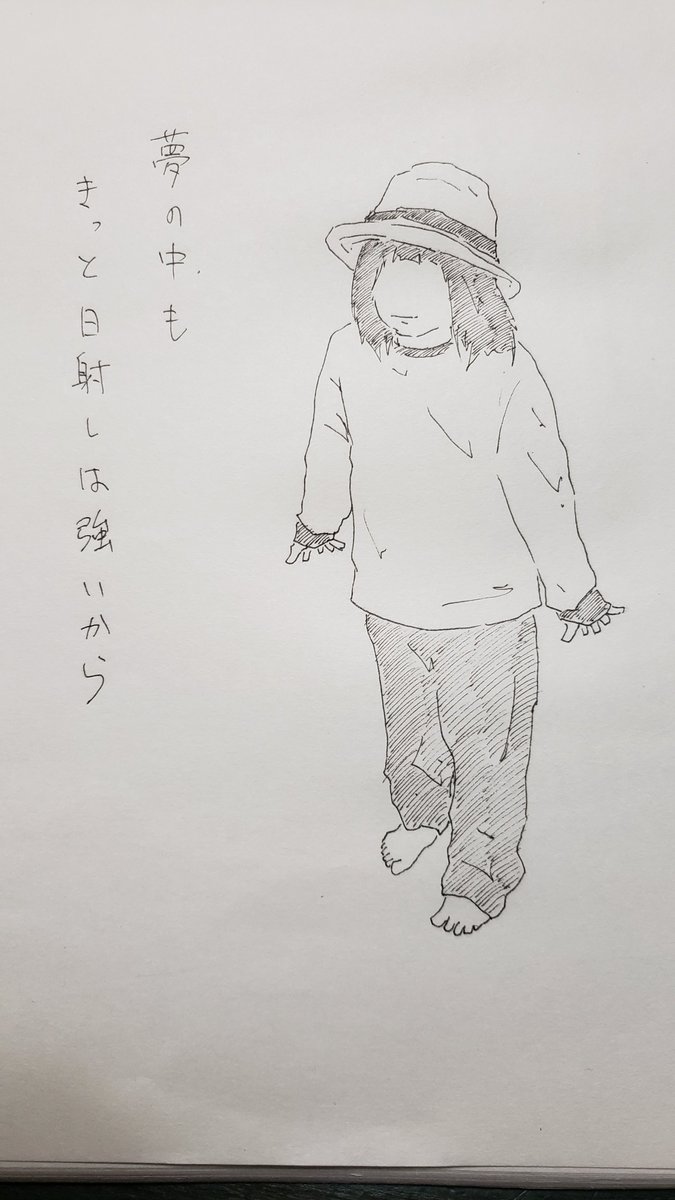 夢の中も
きっと日射しは強いから